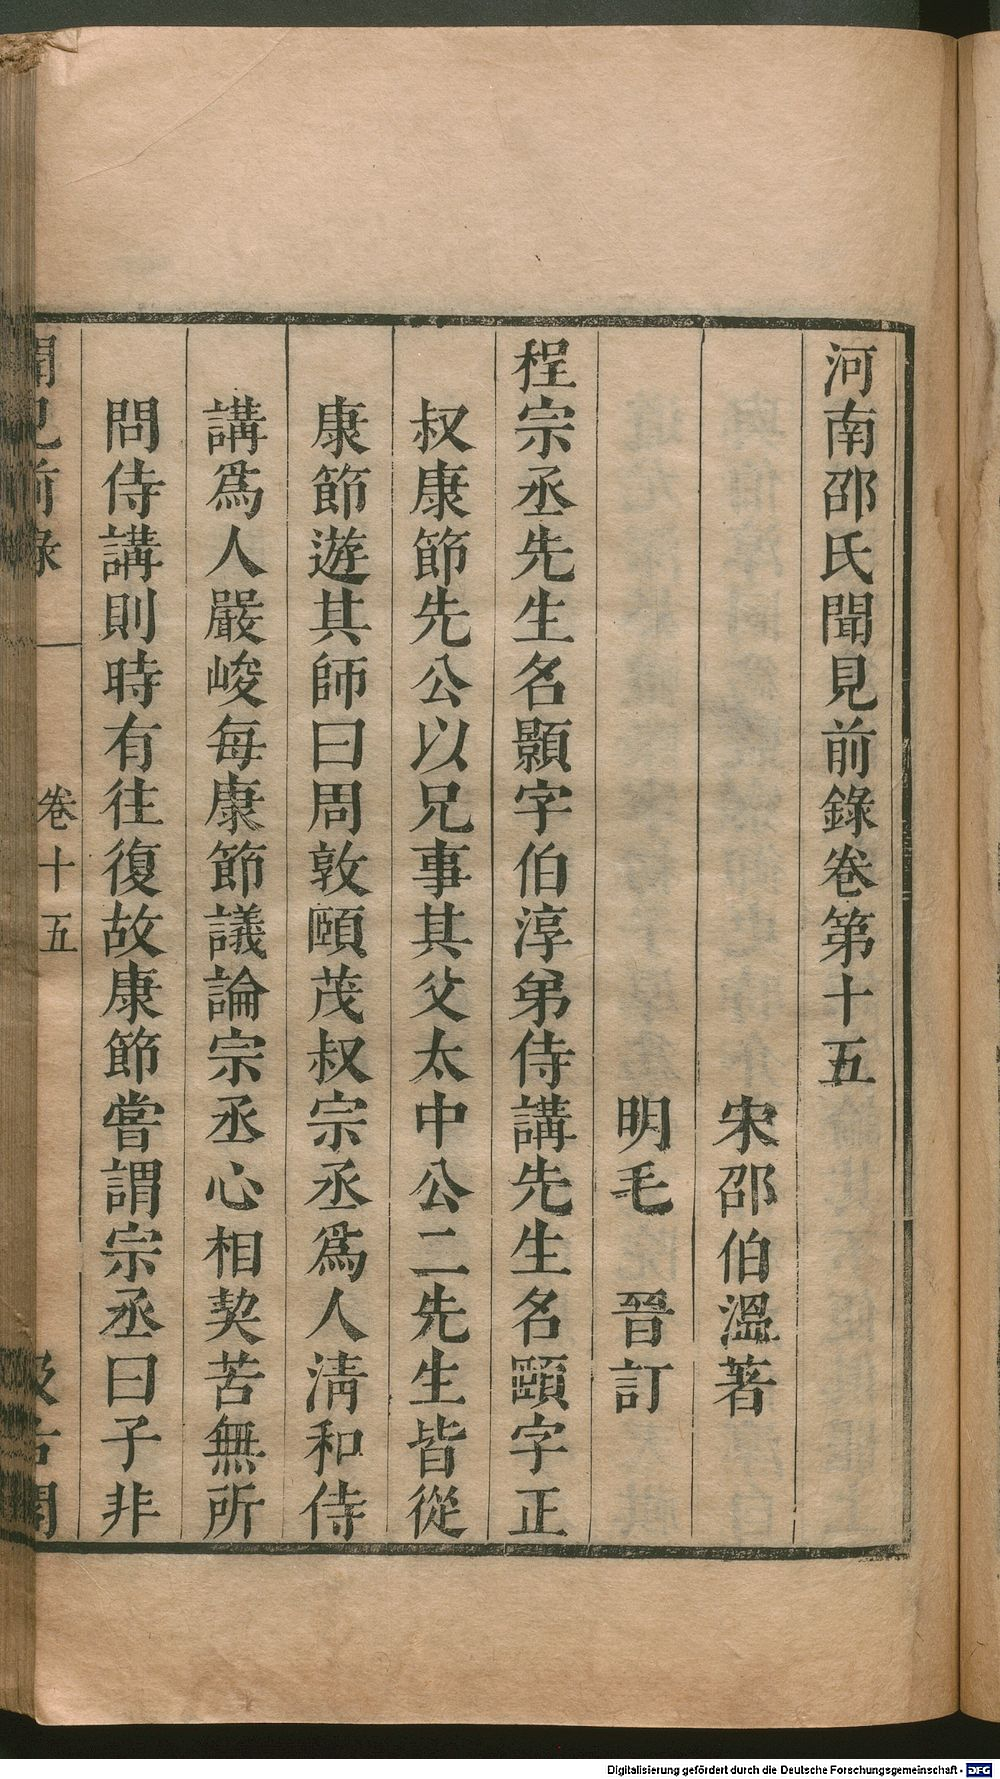 河南邵氏聞見前錄卷第十五
宋邵伯溫著
明毛晉訂
程宗丞先生名顥字伯淳弟侍講先生名頤字正
叔康節先公以兄事其父太中公二先生皆從
康節遊其師曰周敦頤茂叔宗丞爲人清和侍
講爲人嚴峻每康節議論宗丞心相契苦無所
問侍講則時有往復故康節嘗謂宗丞曰子非
聞見前錄 卷十五 汲古閣
Digitalisierung gefördert durch die Deutsche Forschungsgemeinschaft - DFG